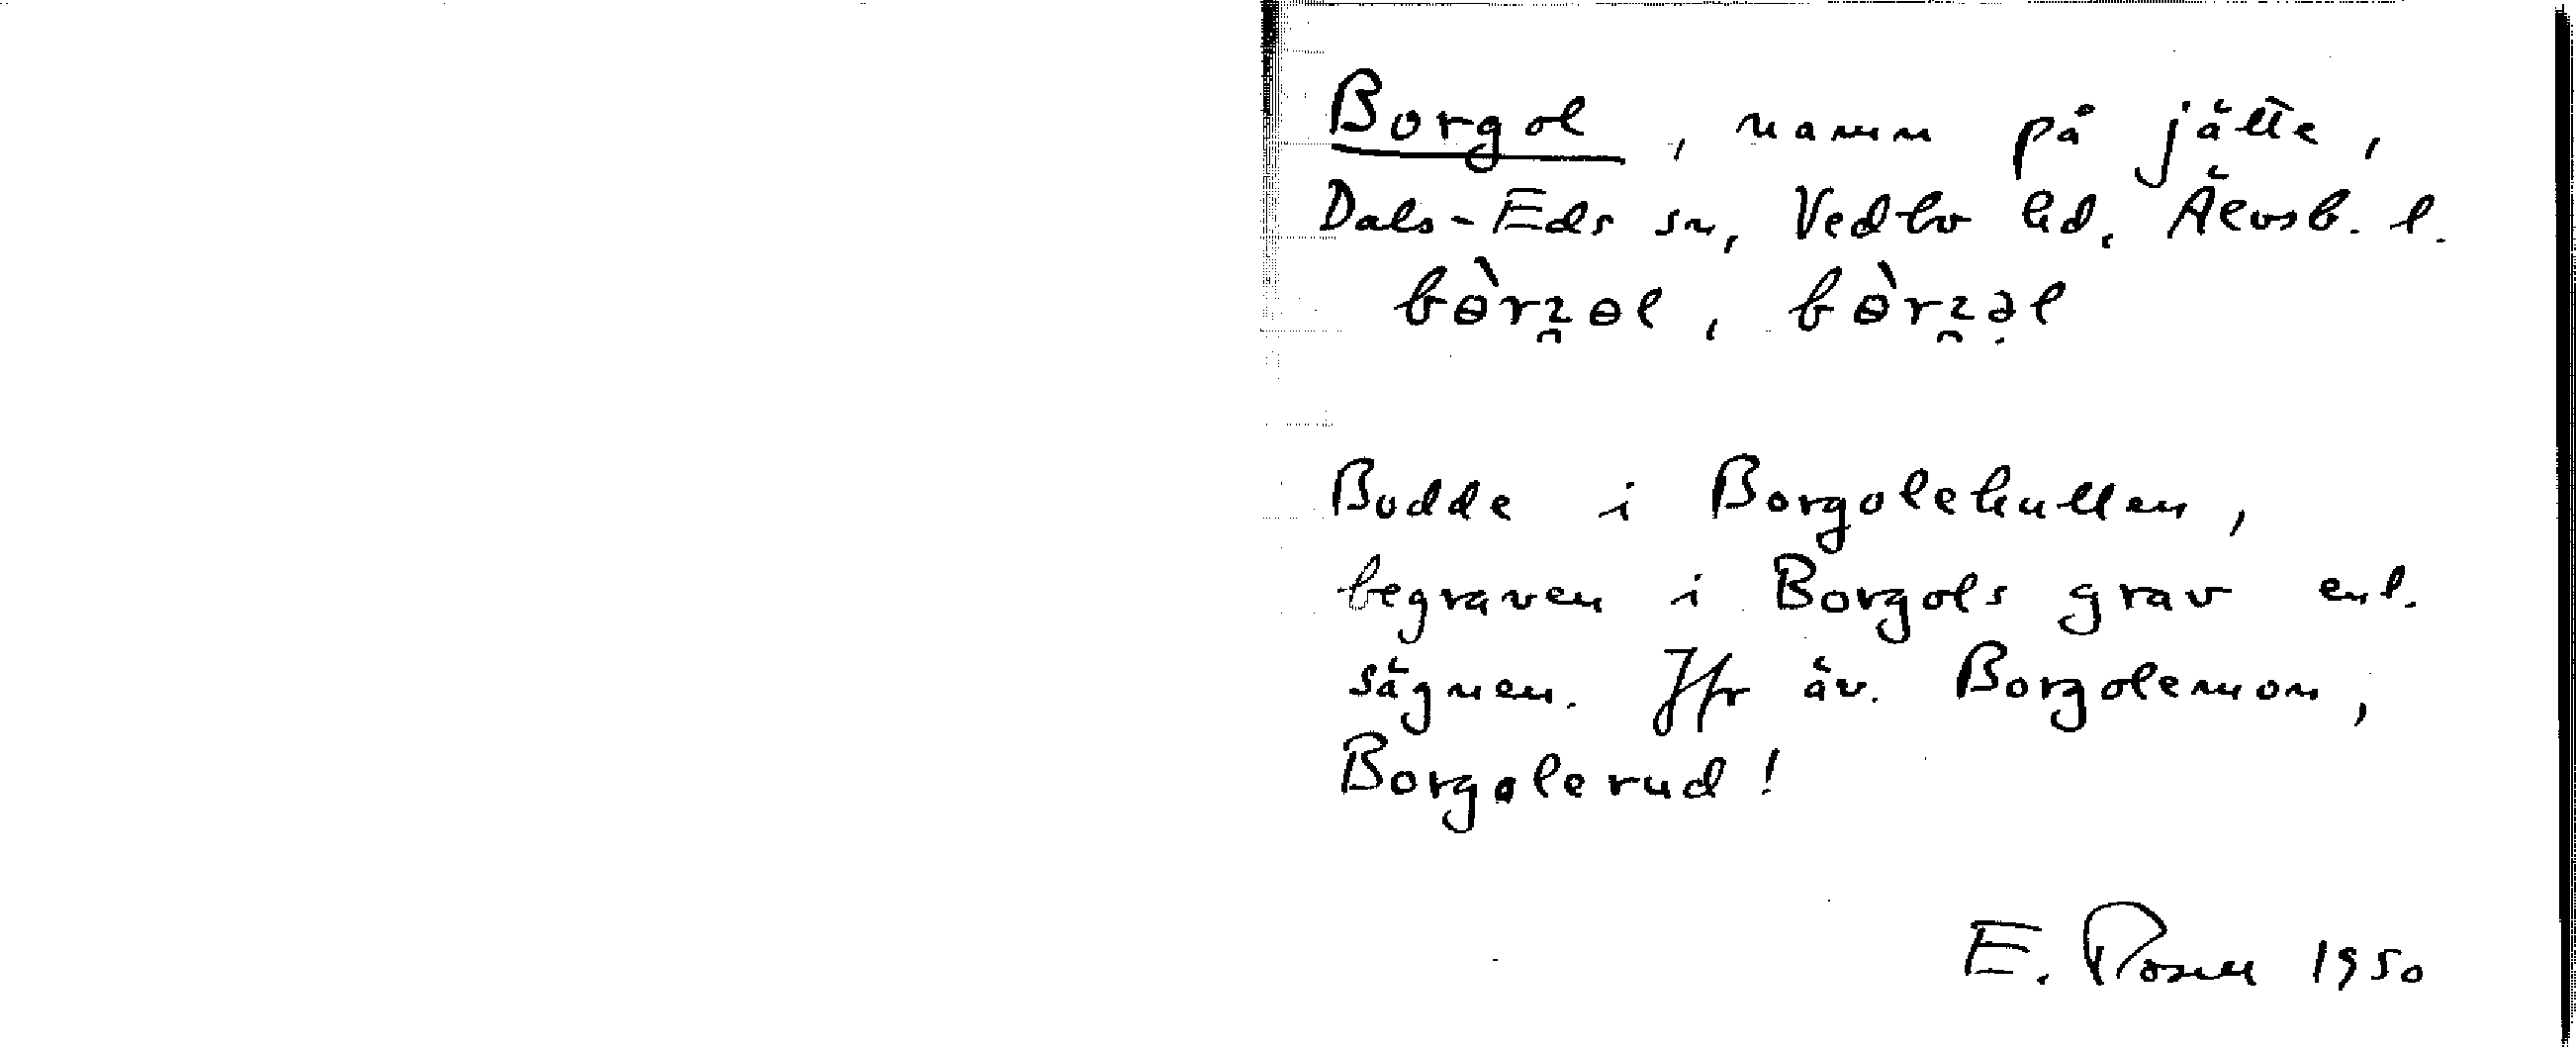 Borgol, namn på jätte,
Dals-Eds sn, Vedbo hd, Älvsb. l.
bɵ̀rꝫ̯ɵl, bɵ̀rꝫ̯ə̣l
Bodde i Borgolehullen,
begraven i Borgols grav enl.
sägnen. Jfr äv. Borgolemon,
Borgolerud!
E. Rosell 1950